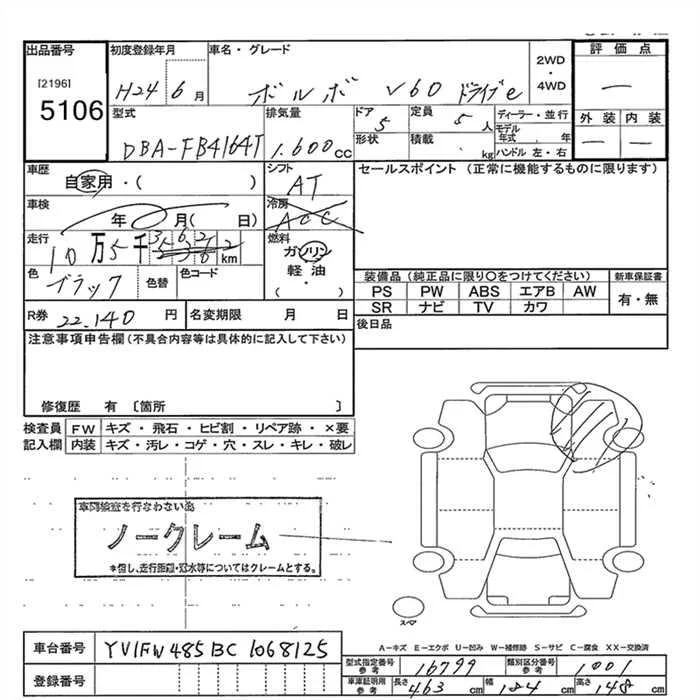 出品番号 初度登録年月 車名・グレード 2WD・4WD 評価点
[2196]
5106
H24 6月 ボルボ V60 ドライブe —
型式 排気量 ドア 定員 ディーラー・並行 外装 内装
DBA-FB4164T 1.600cc 5 5人 モデル年式 年 — —
形状 積載 kg ハンドル 左・右
車歴 シフト セールスポイント (正常に機能するものに限ります)
自家用・( ) AT
車検 冷房
年 月( 日) ACC
走行 燃料
10万5千 km ガソリン
色 色替 色コード 軽油
ブラック ( ・ )
装備品 (純正品に限り○をつけてください) 新車保証書
PS PW ABS エアB AW 有・無
SR ナビ TV カワ
R券 22.140円 名変期限 月 日 後日品
注意事項申告欄(不具合内容等は具体的に記入して下さい)
修復歴 有 [箇所 ]
検査員 FW キズ・飛石・ヒビ割・リペア跡・×要
記入欄 内装 キズ・汚レ・コゲ・穴・スレ・キレ・破レ
車両検査を行なわない為
ノークレーム
*但し、走行距離・冠水等についてはクレームとする。
スペア
A-キズ E-エクボ U-凹み W-補修跡 S-サビ C-腐食 XX-交換済
車台番号 YV1FW485BC1068125
型式指定番号 参考 16799 類別区分番号 参考 1001
登録番号
車庫証明用 参考 長さ 463cm 幅 184cm 高さ 148cm